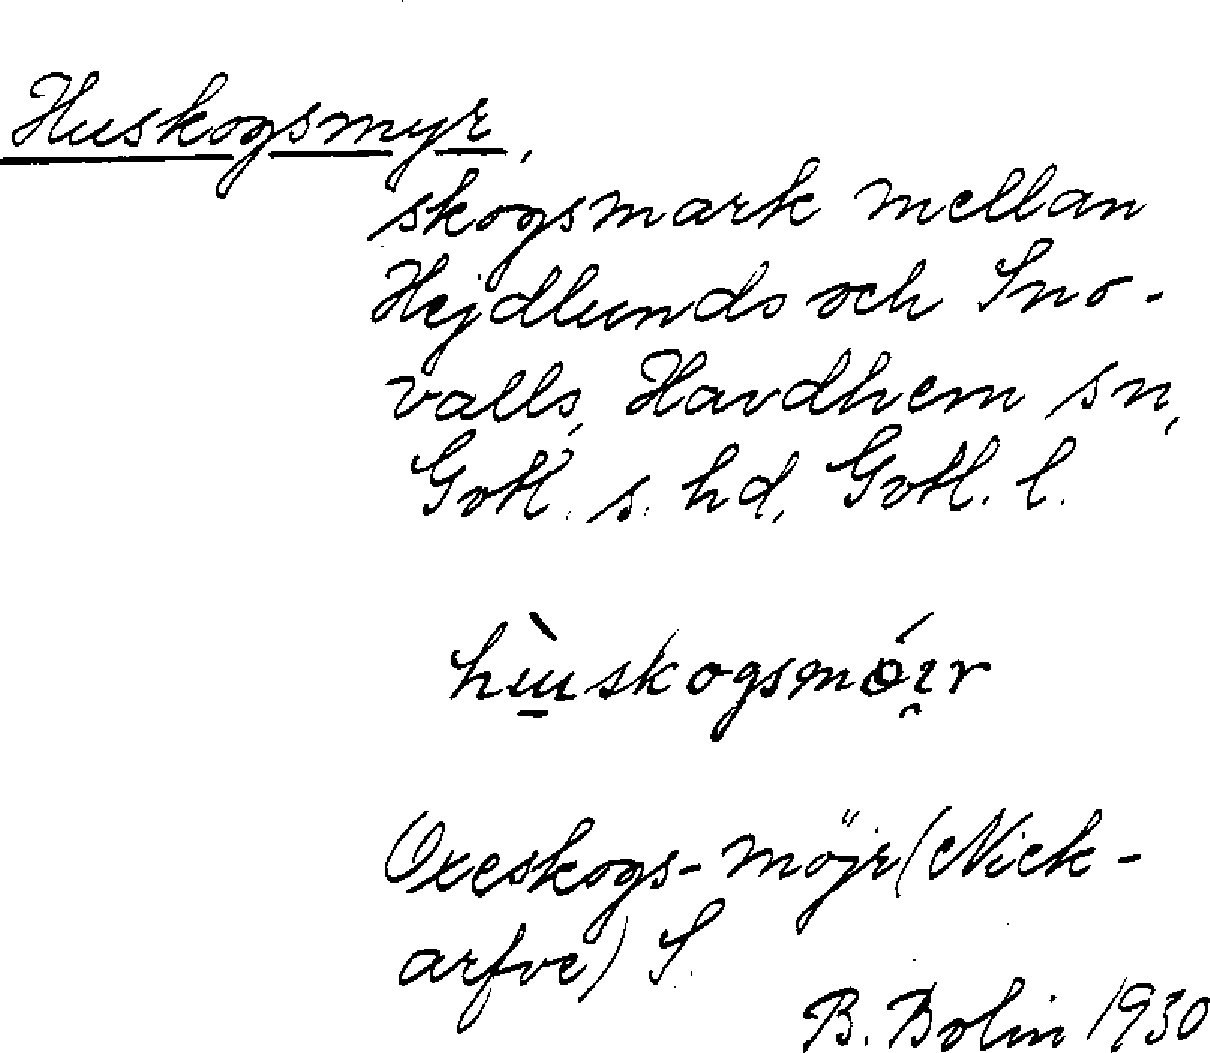 Huskogsmyr,
skogsmark mellan
Hejdlunds och Sno-
valls, Havdhem sn,
Gotl. s. hd, Gotl. l.
hùuskogsmóir
Oxeskogs-möjr (Nick-
arfve) S.
B. Bolin 1930